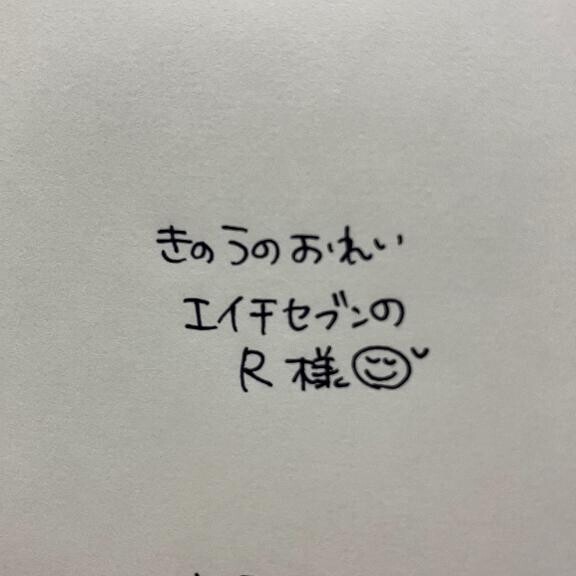 きのうのおれい
エイチセブンの
R 様